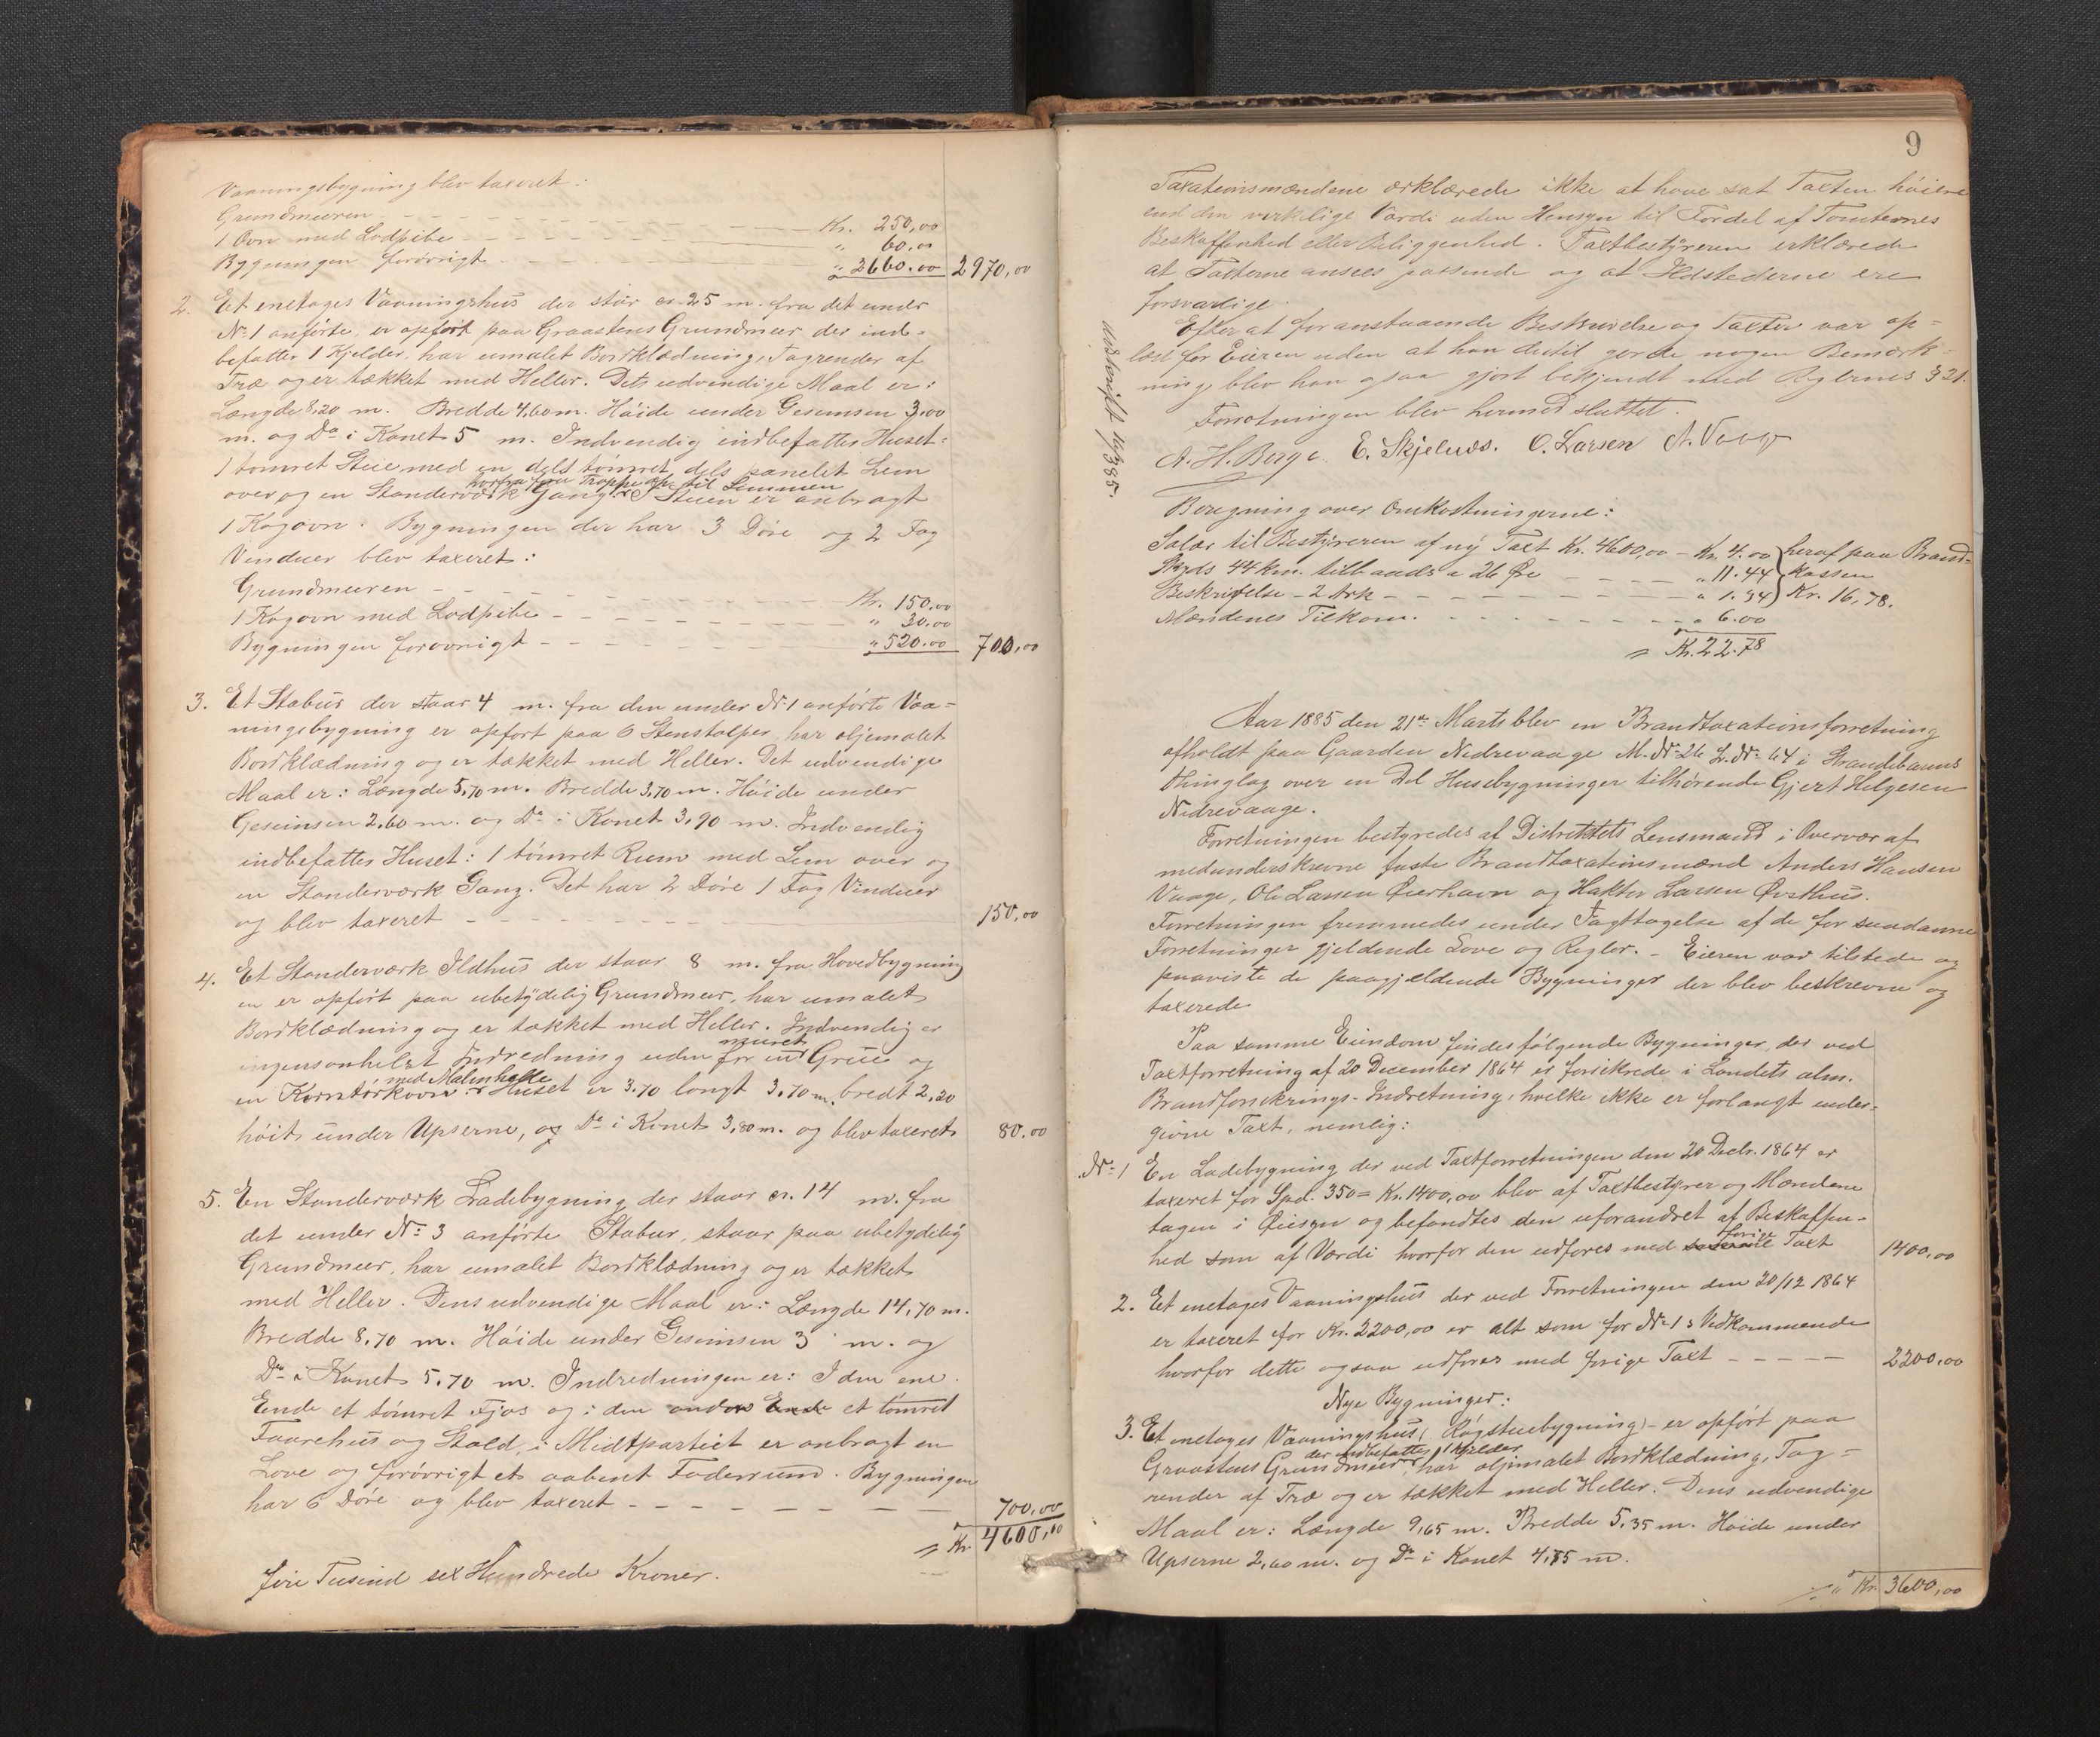 Vaaningsbygning blev taxeret:
Grundmuren - - - - - Kr. 250,00
1 Ovn med Lodpibe - - - - - " 60,00
Bygningen forøvrigt - - - - - " 2660,00 2970,00
2. Et enetages Vaaningshus der står cr. 25 m. fra det under
No 1 anførte, er opført paa Graastens Grundmur der ind-
befatter 1 Kjelder, har umalet Bordklædning, Tagrender af
Træ og er tækket med Heller. Dets udvendige Maal er:
Længde 8,20 m. Bredde 4,60 m. Høide under Gesimsen 3,00
m. og Do i Rønet 5 m. Indvendig indbefatter Huset:
1 tømret Stue med en dels tømret, dels panelet Lem
over og en Standerværk Gang hvorfra fører Trappe op til Lemmen. I Stuen er anbragt
1 Kogovn. Bygningen der har 3 Døre og 2 Fag
Vinduer blev taxeret:
Grundmuren - - - - - Kr. 150,00
1 Kogovn med Lodpibe - - - - - " 30,00
Bygningen forøvrigt - - - - - " 520,00 700,00
3. Et Stabur der staar 4 m. fra den under No 1 anførte Vaa-
ningsbygning er opført paa 6 Stenstolper, har oljemalet
Bordklædning og er tækket med Heller. Det udvendige
Maal er: Længde 5,70 m. Bredde 3,70 m. Høide under
Gesimsen 2,60 m. og Do i Rønet 3,90 m. Indvendig
indbefatter Huset: 1 tømret Rum med Lem over og
en Standerværk Gang. Det har 2 Døre 1 Fag Vinduer
og blev taxeret - - - - - 150,00
4. Et Standerværk Ildhus der staar 8 m. fra Hovedbygning
en er opført paa ubetydelig Grundmur, har umalet
Bordklædning og er tækket med Heller. Indvendig er
ingensomhelst Indredning uden for en muret Grue og
en Korntørkovn med Malmhelle. Huset er 3,70 langt 3,70 m. bredt 2,20
høit under Upserne, og Do i Rønet 3,80 m. og blev taxeret 80,00
5. En Standerværk Ladebygning der staar cr. 14 m. fra
det under No 3 anførte Stabur, staar paa ubetydelig
Grundmur, har umalet Bordklædning og er tækket
med Heller. Dens udvendige Maal er: Længde 14,70 m.
Bredde 8,70 m. Høide under Gesimsen 3 m. og
Do i Rønet 5,70 m. Indredningen er: I den ene
Ende et tømret Fjøs og i den anden Ende et tømret
Faarehus og Stald, i Midtpartiet er anbragt en
Love og forøvrigt et aabent Foderrum. Bygningen
har 6 Døre og blev taxeret - - - - - 700,00
Kr 4600,00
fire Tusind sex Hundrede Kroner.
9
Taxationsmændene erklærede ikke at have sat Taxten høiere
end den virkelige Værdi uden Hensyn til Fordel af Tomternes
Beskaffenhed eller Beliggenhed. Taxtbestyreren erklærede
at Taxterne ansees passende og at Ildstederne ere
forsvarlige.
Efter at foranstaaende Beskrivelse og Taxter var op-
læst for Eieren uden at han dertil gjorde nogen Bemærk-
ning, blev han ogsaa gjort bekjendt med Reglernes § 21.
Forretningen blev hermed sluttet.
A. H. Berge. E. Skjelnes. O. Larsen A. Vaage
Udskrift 14/3 85.
Beregning over Omkostningerne:
Salær til Bestyreren af ny Taxt Kr. 4600,00 - Kr. 4.00 } heraf paa Brand-
Skyds 44 km. tillands a 26 Øre - - - - " 11.44 } kassen
Beskrivelse - 2 Ark - - - - - " 1.34 } Kr. 16,78.
Mændenes Tilkom. - - - - - " 6.00
Kr. 22.78
Aar 1885 den 21de Marts blev en Brandtaxationsforretning
afholdt paa Gaarden Nedrevaage M. No 26 L. No 64 i Strandebarms
Thinglag over en Del Husebygninger tilhørende Gjert Helgesen
Nedrevaage.
Forretningen bestyredes af Distriktets Lensmand i Overvær af
medunderskrevne faste Brandtaxationsmænd Anders Hansen
Vaage, Ole Larsen Øierhavn og Haktor Larsen Øvsthus.
Forretningen fremmedes under Iagttagelse af de for saadanne
Forretninger gjeldende Love og Regler. - Eieren var tilstede og
paaviste de paagjeldende Bygninger der blev beskrevne og
taxerede
Paa samme Eiendom findes følgende Bygninger, der ved
Taxtforretning af 20 December 1864 er forsikrede i Landets alm.
Brandforsikrings-Indretning, hvilke ikke er forlangt under-
givne Taxt, nemlig:
No 1 En Ladebygning der ved Taxtforretningen den 20 Decbr. 1864 er
taxeret for Spd. 350 = Kr. 1400,00 blev af Taxtbestyrer og Mændene
tagen i Øiesyn og befandtes den uforandret af Beskaffen-
hed som af Værdi hvorfor den udføres med forige Taxt 1400,00
2. Et enetages Vaaningshus der ved Forretningen den 20/12 1864
er taxeret for Kr. 2200,00 er alt som for No 1's Vedkommende
hvorfor dette ogsaa udføres med forige Taxt - - - - 2200,00
Nye Bygninger:
3. Et enetages Vaaningshus (Røgstuebygning) - er opført paa
Graastens Grundmur der indbefatter 1 Kjelder, har oljemalet Bordklædning, Tag-
render af Træ og er tækket med Heller. Dens udvendige
Maal er: Længde 9,65 m. Bredde 5,35 m. Høide under
Upserne 2,60 m. og Do i Rønet 4,85 m.
Kr. 3600,00